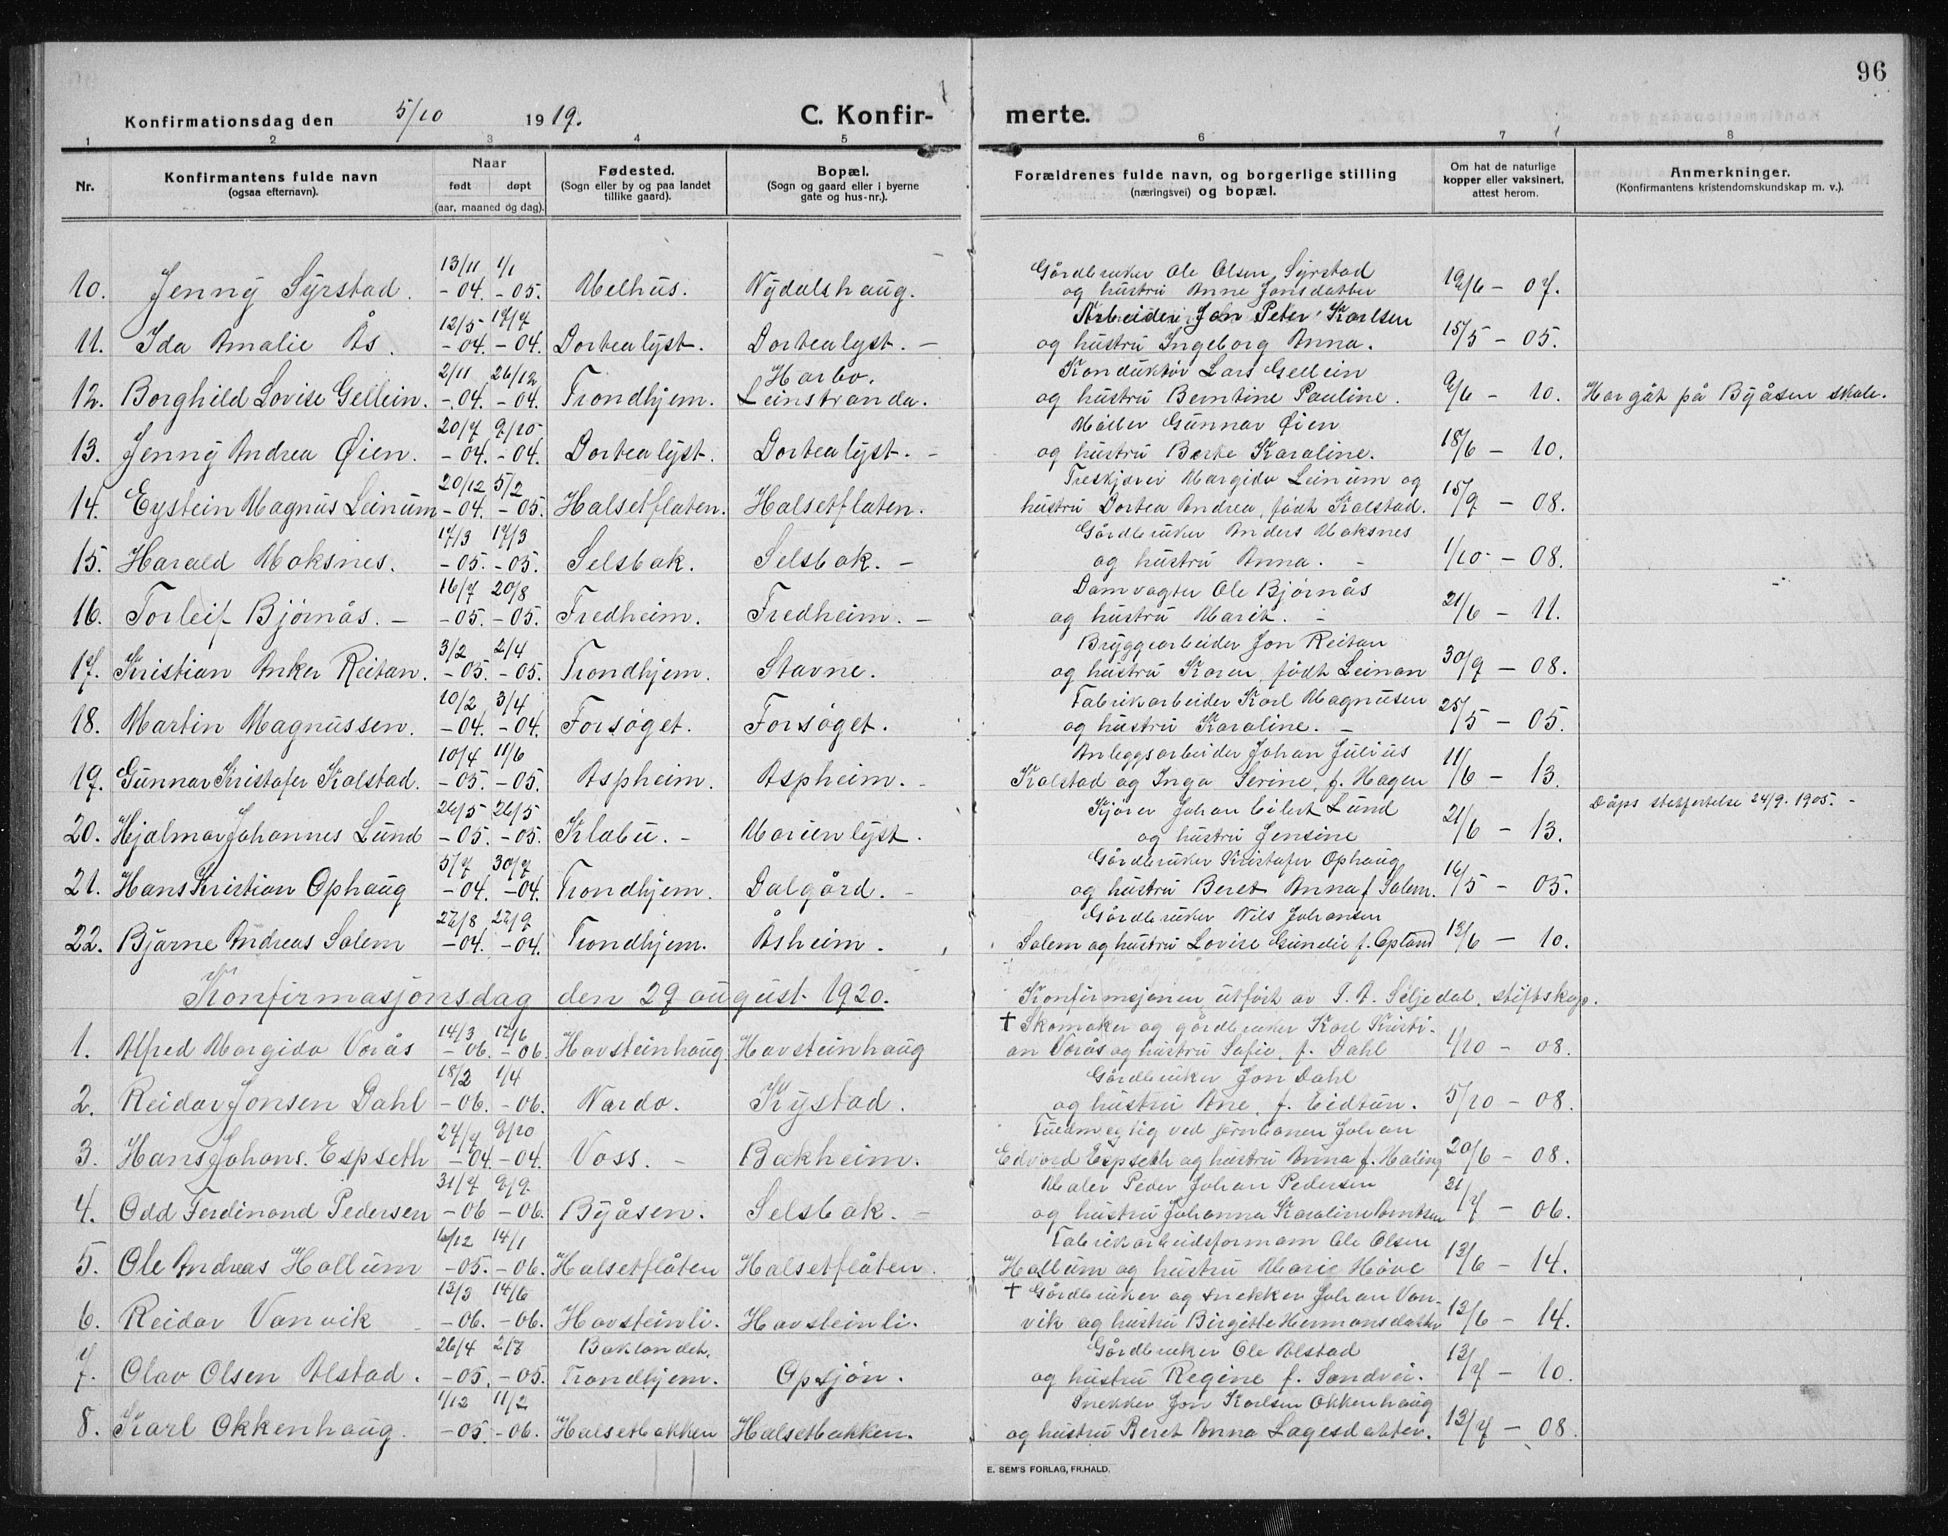 96
Konfirmationsdag den 5/10 1919. C. Konfirmerte.
1 2 3 4 5 6 7 8
Nr. Konfirmantens fulde navn (ogsaa efternavn). Naar født døpt (aar, maaned og dag). Fødested. (Sogn eller by og paa landet tillike gaard). Bopæl. (Sogn og gaard eller i byerne gate og hus-nr.). Forældrenes fulde navn, og borgerlige stilling (næringsvei) og bopæl. Om hat de naturlige kopper eller vaksinert, attest herom. Anmerkninger. (Konfirmantens kristendomskundskap m. v.).
13/11 1/1 Gårdbruker Ole Olsen Syrstad
10. Jenny Syrstad. -04. -05. Melhus. Nydalshaug. og hustru Anne Jonsdatter 19/6 - 07.
12/5 17/7 Arbeider Jon Peter Karlsen
11. Ida Amalie Ås. -04. -04. Dortealyst. Dortealyst. - og hustru Ingeborg Anna. 15/5 - 05.
2/11 26/12 Harbo. Konduktør Lars Gellein
12. Borghild Lovise Gellein. -04. -04. Trondhjem. Leinstranda. og hustru Berntine Pauline. 9/6 - 10. Har gåt på Byåsen skole.
20/7 9/10 Møller Gunnar Øien
13. Jenny Andrea Øien. -04. -04. Dortealyst. Dortealyst. - og hustru Berte Karoline. 18/6 - 10.
20/12 5/2 Treskjærer Margido Leinum og
14. Eystein Magnus Leinum -04. -05. Halsetflaten. Halsetflaten. hustru Dortea Andrea, født Kolstad. 15/9 - 08.
17/3 17/3 Gårdbruker Anders Moksnes
15. Harald Moksnes. -05. -05. Selsbak. Selsbak. - og hustru Anna. - 1/10 - 08.
16/7 20/8 Damvagter Ole Bjørnås
16. Torleif Bjørnås. - -05. -05. Fredheim. Fredheim. - og hustru Marit. - 21/6 - 11.
3/2 2/4 Bryggearbeider Jon Reitan
17. Kristian Anker Reitan. -05. -05. Trondhjem. Stavne. og hustru Karen, født Leinan 30/9 - 08.
10/2 3/4 Fabrikarbeider Karl Magnusen
18. Martin Magnussen. -04. -04. Forsøget. Forsøget. og hustru Karoline. - 25/5 - 05.
10/4 11/6 Anleggsarbeider Johan Julius
19. Gunnar Kristofer Kolstad. -05. -05. Aspheim. Aspheim. Kolstad og Inga Serine, f. Hagen 11/6 - 13.
26/5 26/5 Kjører Johan Eilert Lund Dåps stadfestelse 24/9. 1905. -
20. Hjalmar Johannes Lund -05. -05. Klæbu. - Marienlyst. og hustru Jensine 21/6 - 13.
5/7 30/7 Gårdbruker Kristofer Ophaug
21. Hans Kristian Ophaug -04. -04. Trondhjem. Dalgård. - og hustru Beret Anna f. Solem. 16/5 - 05.
27/8 27/9 Gårdbruker Nils Johansen
22. Bjarne Andreas Solem -04. -04. Trondhjem. Åsheim. Solem og hustru Lovise Gundie f. Opland 13/6 - 10.
Konfirmasjonsdag den 29 august 1920. Konfirmsjonen utført av S. A. Seljedal, stiftskap.
14/3 17/6 † Skomaker og gårdbruker Karl Kristi-
1. Alfred Margido Vorås -06. -06. Havsteinhaug. Havsteinhaug an Vorås og hustru Sofie, f. Dahl 1/10 - 08.
18/2 1/4 Gårdbruker Jon Dahl
2. Reidar Jonsen Dahl -06. -06. Nardo. Kystad. og hustru Ane, f. Eidtun. 5/10 - 08.
27/7 9/10 Fuldmegtig ved jernbanen Johan
3. Hans Johans. Espseth -04. -04. Voss. - Bakheim. Edvard Espseth og hustru Anna f. Maling 20/6 - 08.
31/7 9/9 Maler Peder Johan Pedersen
4. Odd Ferdinand Pedersen -06 -06. Byåsen. Selsbak. - og hustru Johanna Karoline Arntsen 21/7 - 06.
6/12 14/1 Fabrikarbeidsformann Ole Olsen
5. Ole Andreas Hallum -05. -06. Halsetflåten Halsetflåten. Hallum og hustru Marie Høve 13/6 - 14.
13/3 14/6 † Gårdbruker og snekker Johan Van-
6. Reidar Vanvik -06. -06. Havsteinli. Havsteinli. vik og hustru Birgitte Hermansdatter 13/6 - 14.
26/4 2/7 Baklandet. Gårdbruker Ole Alstad
7. Olav Olsen Alstad. -05. -05. Trondhjem. Opsjøn. og hustru Regine f. Sandvei. 13/7 - 10.
1/12 11/2 Snekker Jon Karlsen Okkenhaug
8. Karl Okkenhaug. -05. -06. Halsetbakken Halsetbakken. og hustru Beret Anna Lagesdatter. 13/7 - 08.
E. SEM'S FORLAG, FR.HALD.